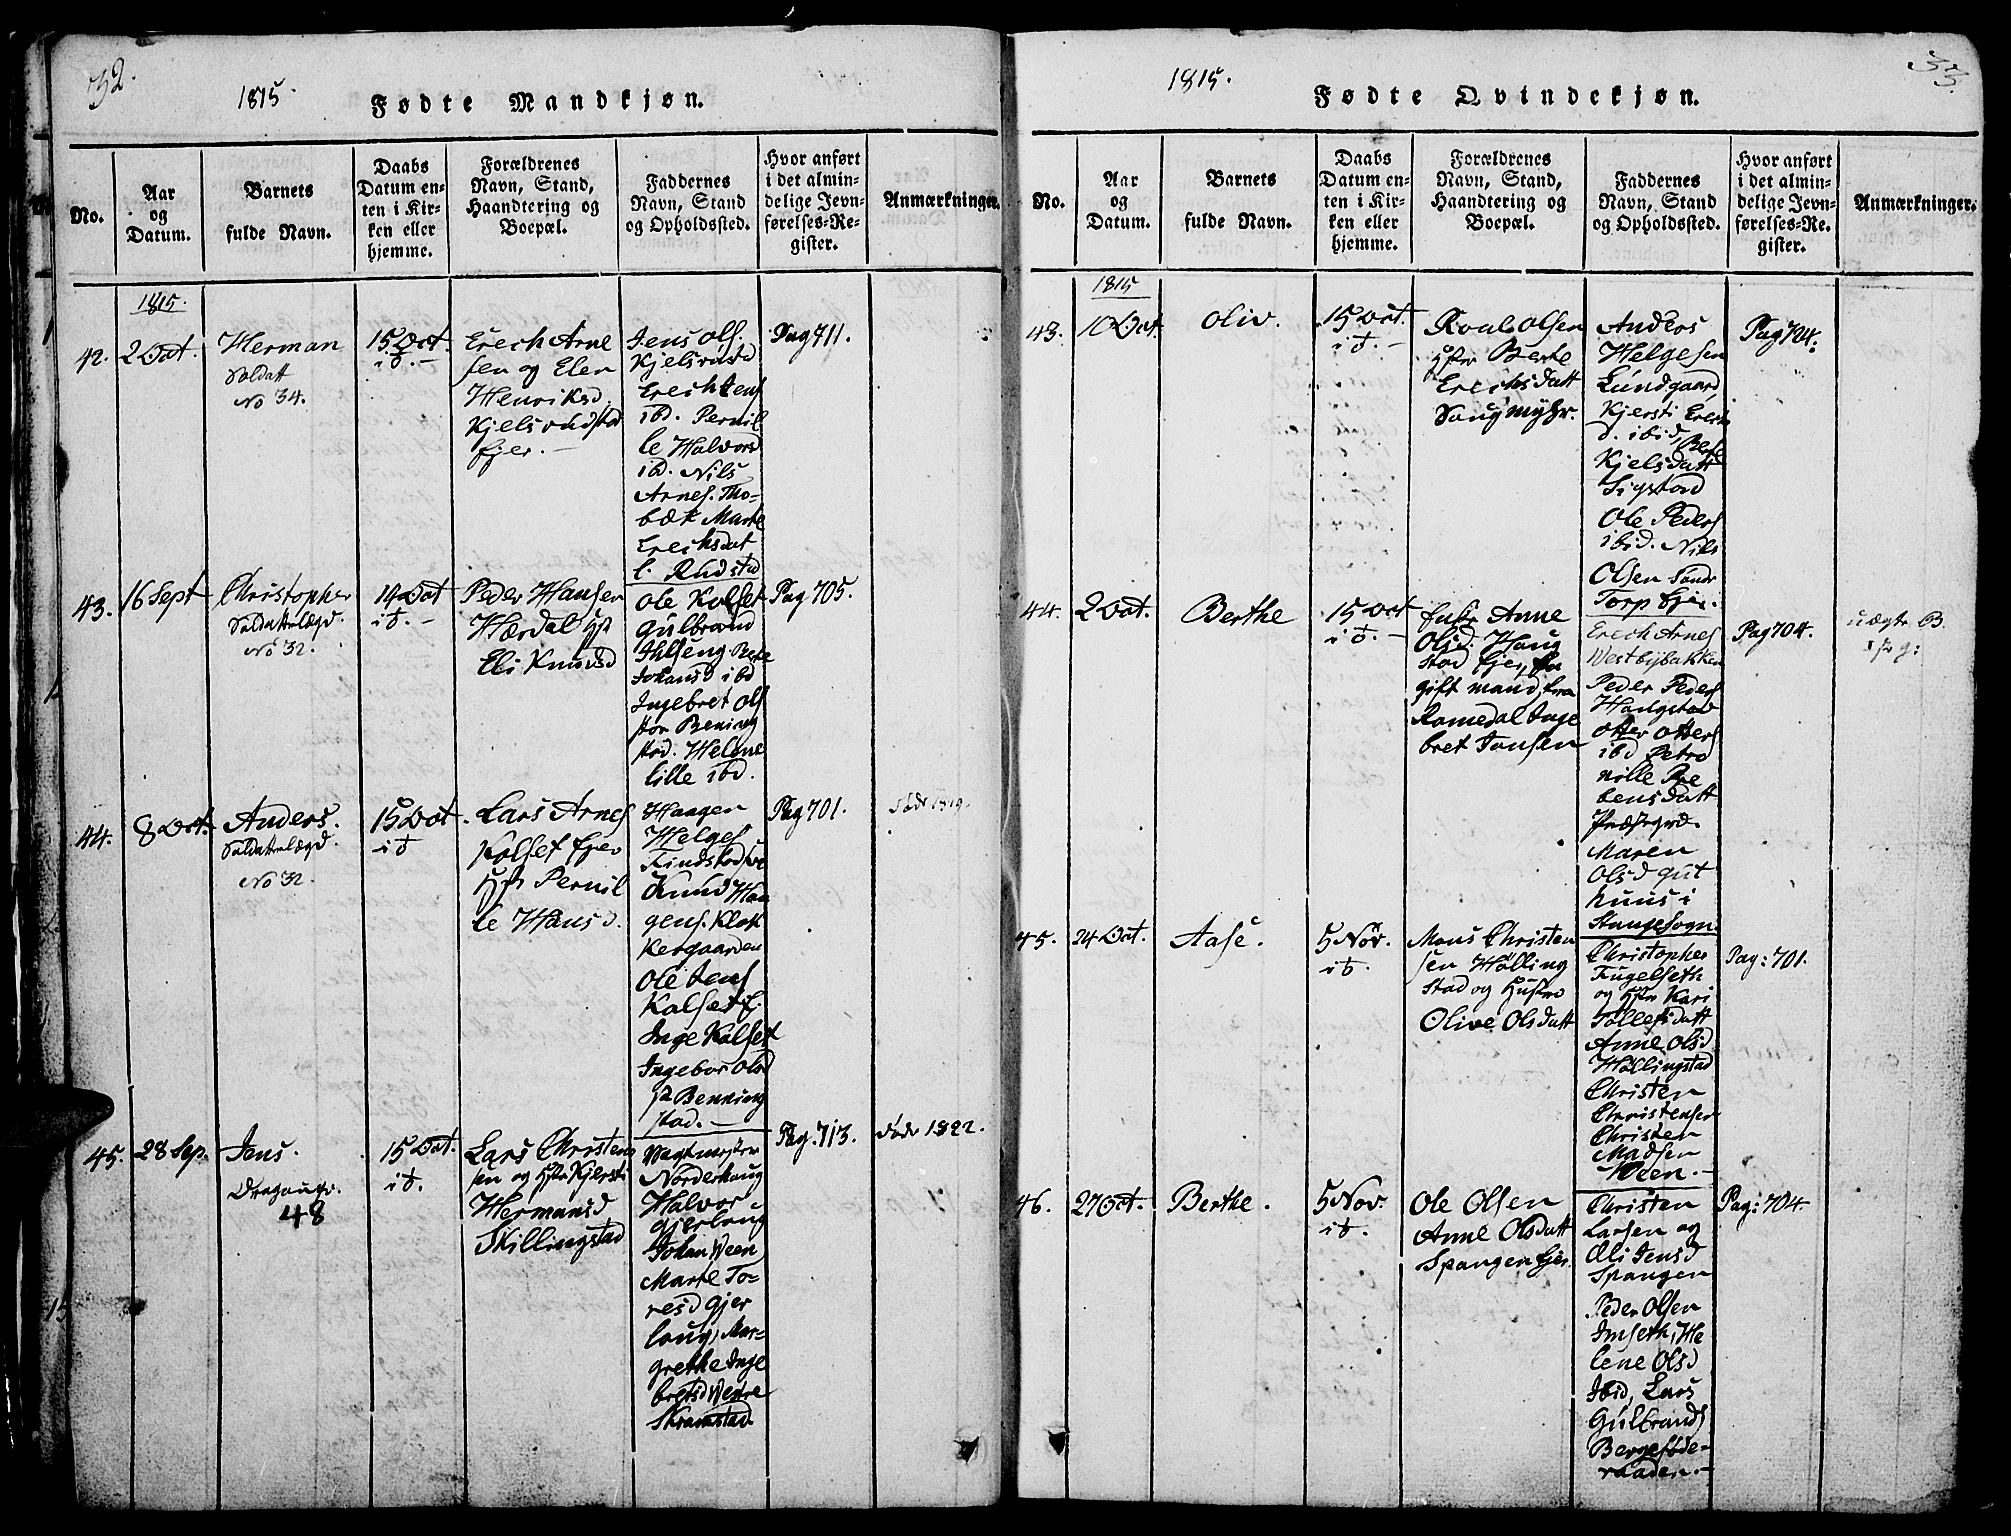 32.
1815.
Fødte Mandkjøn.
No.
Aar
og
Datum.
Barnets
fulde Navn.
Daabs
Datum en-
ten i Kir-
ken eller
hjemme.
Forældrenes
Navn, Stand,
Haandtering og
Boepæl.
Faddernes
Navn, Stand
og Opholdssted.
Hvor anført
i det almin-
delige Jevn-
førelses-Re-
gister.
Anmærkninger.
1815.
42.
2 Oct.
Herman
Soldatt
No 34.
15 Oct.
Erech Arne
sen og Elen
Henriksd.
Kjelsrudstad
Ejer.
Jens Ols.
Kjelsrustd
Erech Jens
ibd. Pernil
le Halvorsd
ibd. Nils
Arnes. Tho-
bæk Marte
Erechsdat
l. Rudstad
Pag 711.
43.
16 Sept
Christopher
Soldattelægd.
No 32.
14 Oct
Peder Hansen
Hærdal
Eli Knudsd
Ole Kolset
Gulbrand
Ihlseng Bete
Johansd ibd
Ingebret Ols
stor Bening
stad. Helene
lille ibd.
Pag 705.
44.
8 Oct.
Anders.
Soldattelægd.
No 32.
15 Oct.
Lars Arnes
Kolset Ejer
Pernil
le Hansd.
Haagen
Helges
Findstad
Knud Haa
gens. Klok
kergaarden
Ole Jens
Kolset E.
Inge Kolset
Ingebor Olsd
Benning
stad.
Pag 701.
døde 1819.
45.
28 Sep.
Jens.
Dragongv.
48
15 Oct.
Lars Christen
sen og Hstr Kjersti
Hermansd
Skillingstad
Vagtmester
Norderhaug
Halvor
Gjerloug
Johan Ween
Marte To-
resd Gjer
loug, Mar-
grethe Inge
bretsd Westre
Skramstad
Pag. 713.
døde 1822.
33.
1815.
Fødte Qvindekjøn.
No.
Aar
og
Datum.
Barnets
fulde Navn.
Daabs
Datum en-
ten i Kir-
ken eller
hjemme.
Forældrenes
Navn, Stand,
Haandtering og
Boepæl.
Faddernes
Navn, Stand
og Opholdssted.
Hvor anført
i det almin-
delige Jevn-
førelses-Re-
gister.
Anmærkninger.
1815
43.
10 Oct.
Oliv.
15 Oct.
Roal Olsen
Hstr Berte
Erechsdatt
Saugmyhr.
Anders
Helgesen
Lundgaard,
Kjersti Erechs
d. ibid, Berte
Kjelsdatt
Sigstad
Ole Peders
ibid. Nils
Olsen Sandr
Torp Ejer.
Pag 704.
44.
2 Oct.
Berthe
15 Oct
Anne
Olsd. Haug
stad Ejer,
gift mand fra
Romedal Inge
bret Jonsen
Erech Arnes
Westbybakken
Peder Peders
Haugstad
Otter Otters
ibd Petro
nille Pre
bensdatt
Præstgrd.
Maren
Olsd Gut
huus i
StangeSogn
Pag 704.
uægte B.
45.
24 Oct.
Aase.
5 Nov.
Mons Christen
sen Hølling
stad og Hustro
Olive Olsdatt
Christopher
Fugelseth
og Hstr Kari
Tollefsdatt
Anne Olsd
Høllingstad
Christen
Christensen
Christen
Madsen
Ween.
Pag: 701.
46.
27 Oct.
Berthe.
5 Nov.
Ole Olsen
Anne Olsdatt
Spangen Ejer.
Christen
Larsen og
Eli Jensd
Spangen
Peder Olsen
Imseth, He
lene Olsd
Ibid, Lars
Gulbrands
Bergeføde-
raaden.
Pag: 704.